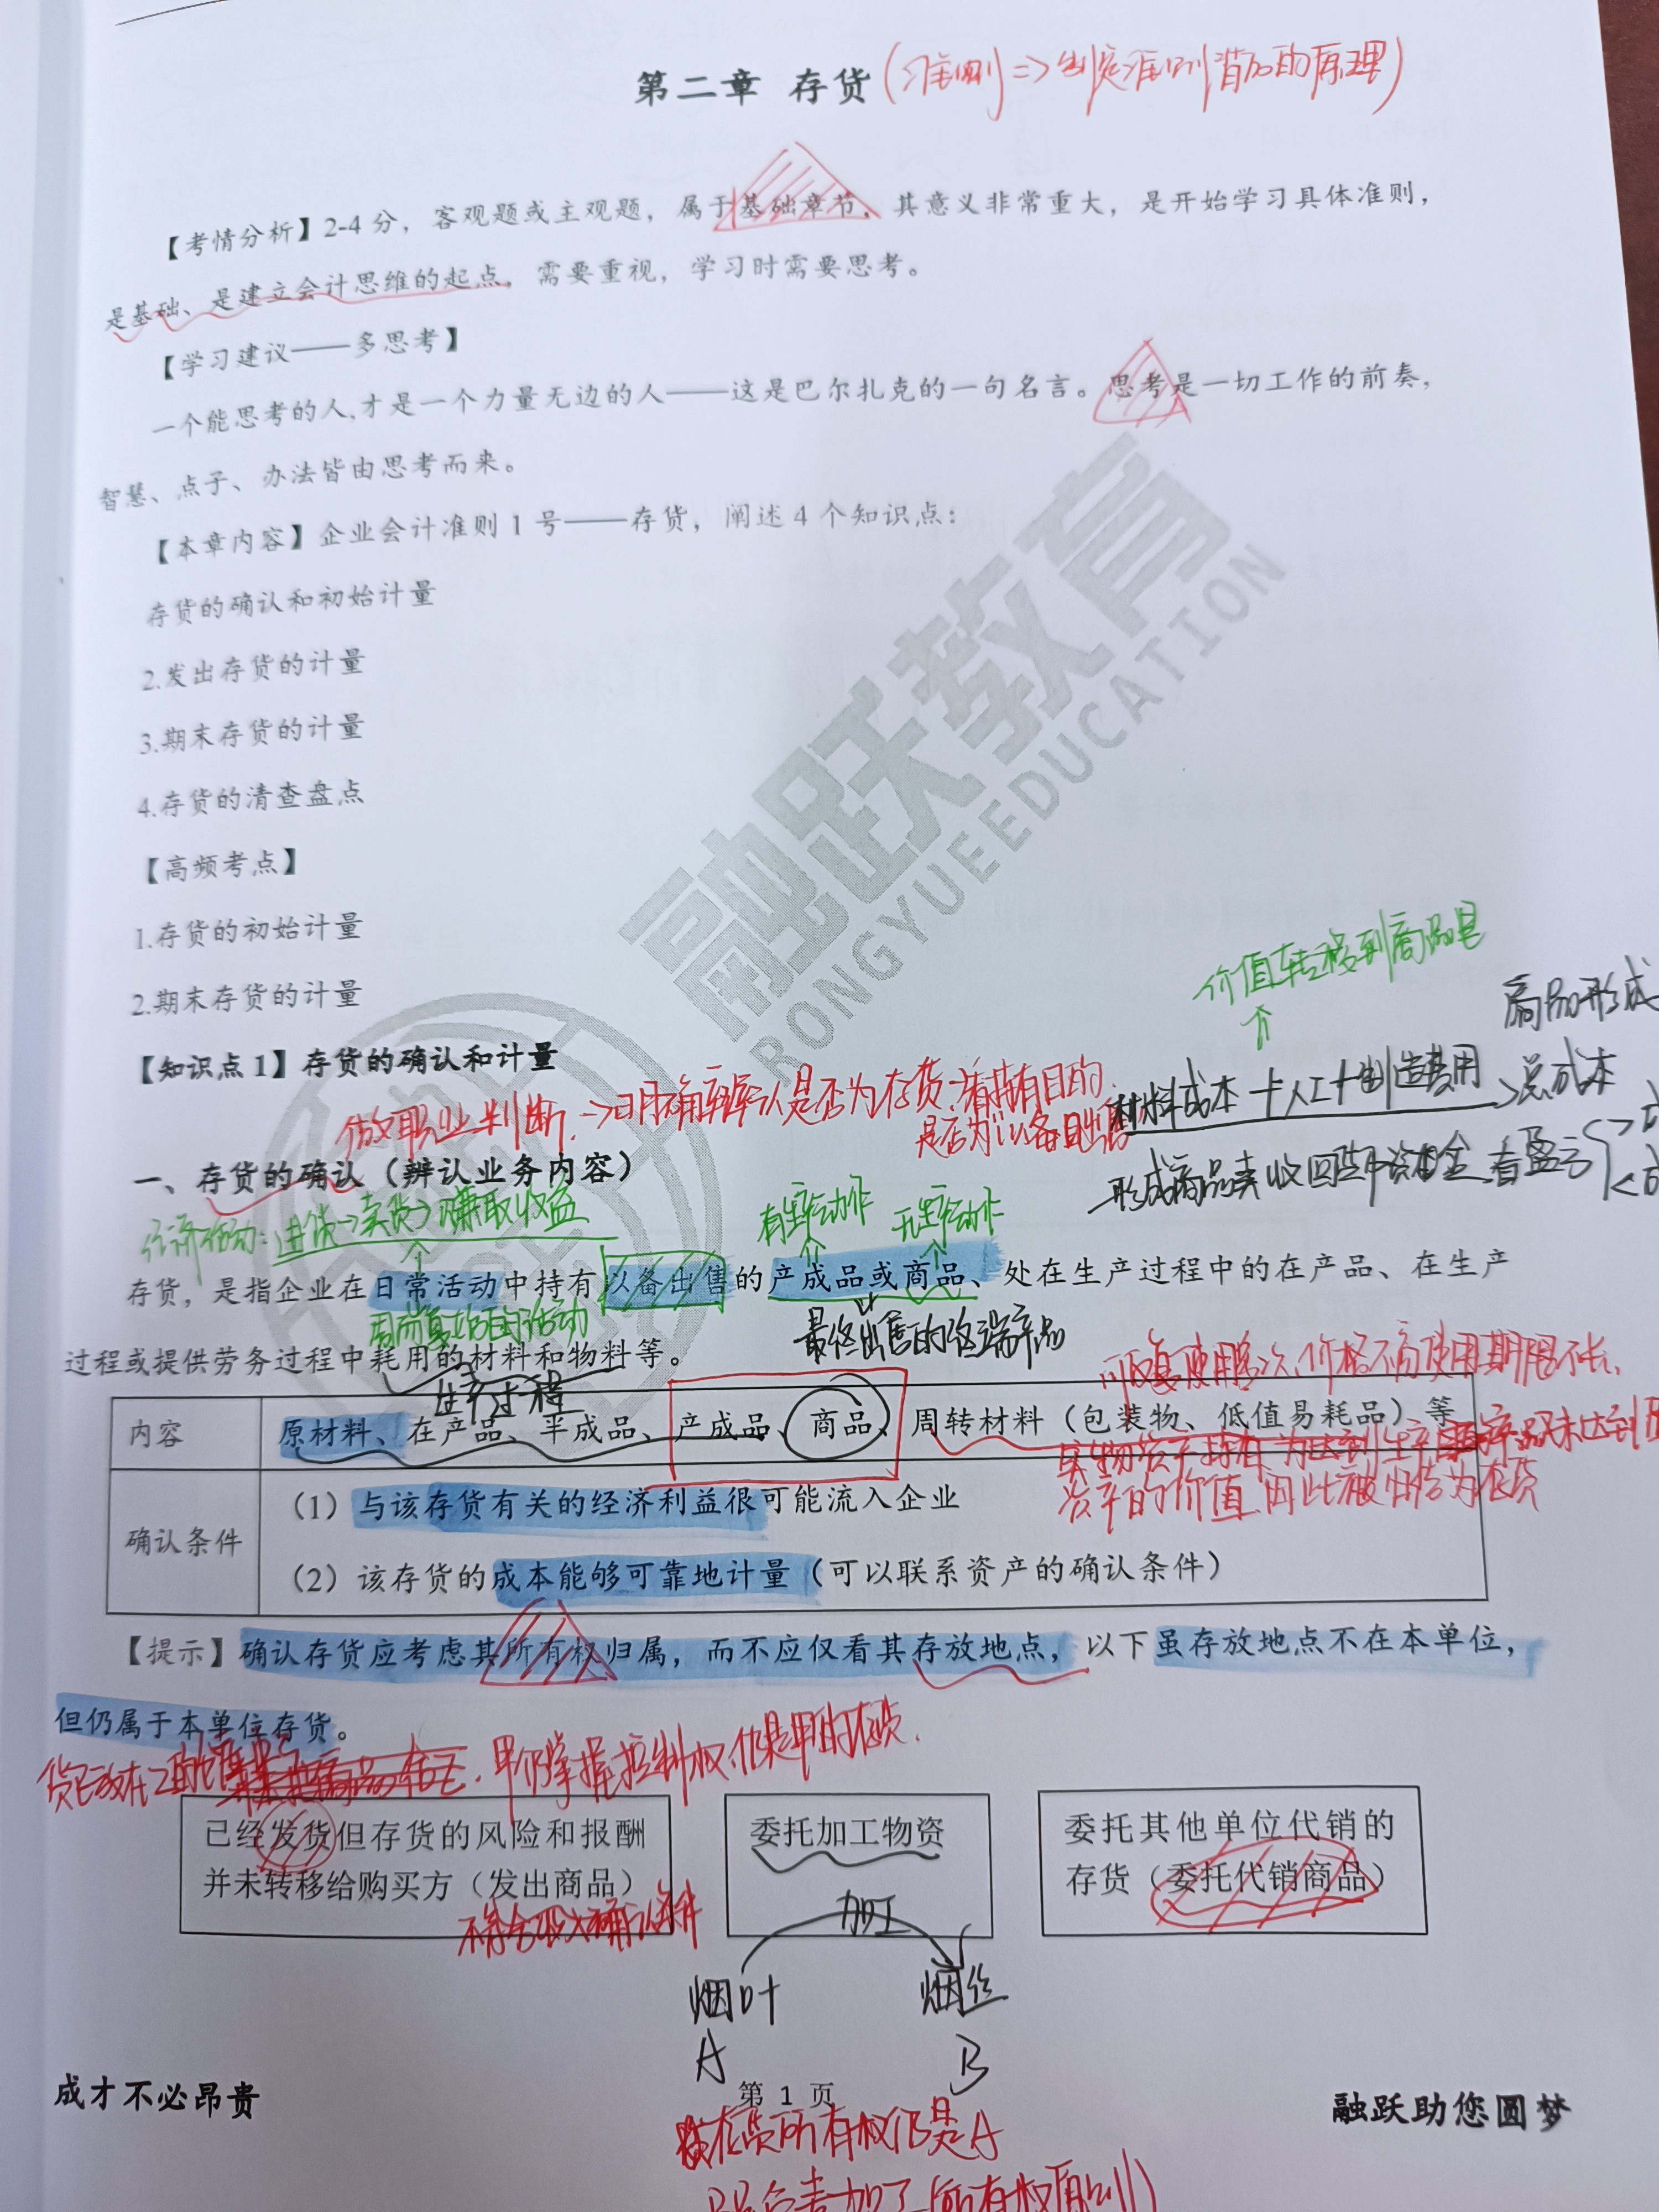 第二章 存货(准则=>制定准则背后的原理)
【考情分析】2-4 分，客观题或主观题，属于基础章节，其意义非常重大，是开始学习具体准则，
是基础、是建立会计思维的起点。需要重视，学习时需要思考。
【学习建议——多思考】
一个能思考的人,才是一个力量无边的人——这是巴尔扎克的一句名言。思考是一切工作的前奏，
智慧、点子、办法皆由思考而来。
【本章内容】企业会计准则 1 号——存货，阐述 4 个知识点：
存货的确认和初始计量
2.发出存货的计量
3.期末存货的计量
4.存货的清查盘点
【高频考点】
1.存货的初始计量
2.期末存货的计量
融跃教育
RONGYUEEDUCATION
价值转移到商品里
商品形成
【知识点 1】存货的确认和计量
材料成本+人工+制造费用→总成本
做职业判断.→明确辨认是否为存货:看持有目的,
是否为以备出售
形成商品卖收回资金 看盈亏
一、存货的确认（辨认业务内容）
经济活动: 进货→卖货→赚取收益
有生产动作
无生产动作
存货，是指企业在日常活动中持有以备出售的产成品或商品、处在生产过程中的在产品、在生产
周而复始的活动
最终出售的终端产品
过程或提供劳务过程中耗用的材料和物料等。
生产过程
可反复使用多次,价格不高使用期限不长,
内容
原材料、在产品、半成品、产成品、商品、周转材料（包装物、低值易耗品）等
资产的价值,因此被归结为存货
确认条件
（1）与该存货有关的经济利益很可能流入企业
（2）该存货的成本能够可靠地计量（可以联系资产的确认条件）
【提示】确认存货应考虑其所有权归属，而不应仅看其存放地点，以下虽存放地点不在本单位，
但仍属于本单位存货。
甲仍掌握控制权,仍是甲的存货.
已经发货但存货的风险和报酬
并未转移给购买方（发出商品）
不符合收入确认条件
委托加工物资
委托其他单位代销的
存货（委托代销商品）
加工
烟叶
烟丝
A
B
成才不必昂贵
第 1 页
融跃助您圆梦
存货所有权仍是A